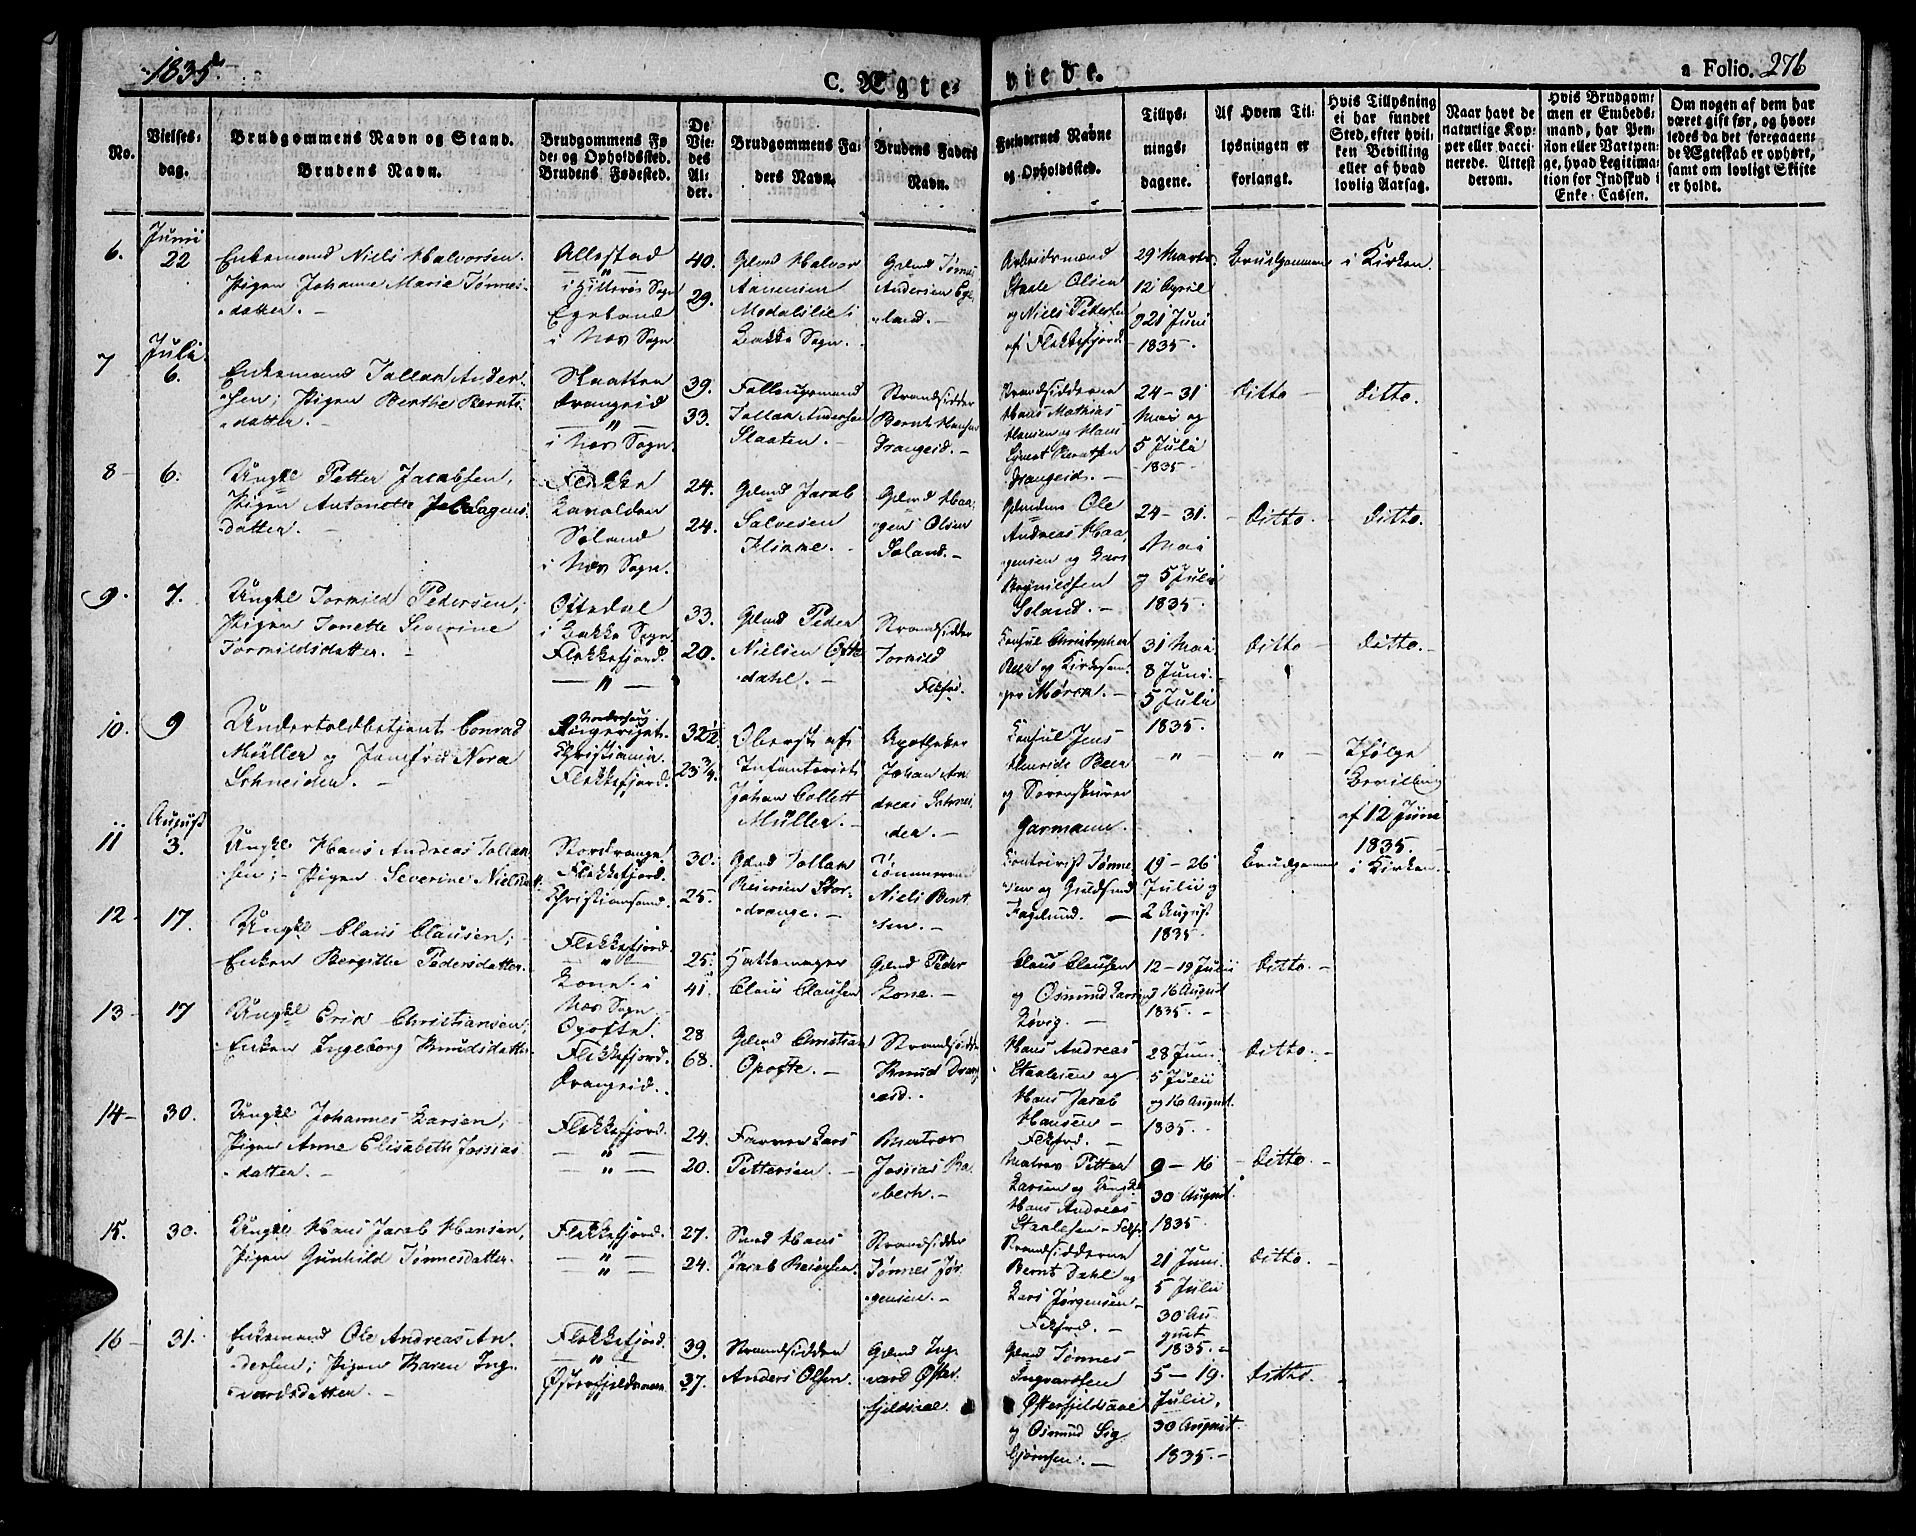 1835.
C. Ægte-
viede.
a Folio. 276
No.
Vielses-
dag.
Brudgommens Navn og Stand.
Brudens Navn.
Brudgommens Fø-
de- og Opholdssted.
Brudens Fødested.
De
Vie-
des
Al-
der.
Brudgommens Fa-
ders Navn.
Brudens Faders
Navn.
Forlovernes Navne
og Opholdssted.
Tillys-
nings-
dagene.
Af Hvem Til-
lysningen er
forlangt.
Hvis Tillysning
ei har fundet
Sted, efter hvil-
ken Bevilling
eller af hvad
lovlig Aarsag.
Naar havt de
naturlige Kop-
per eller vacci-
nerede. Attest
derom.
Hvis Brudgom-
men er Embeds-
mand, har Pen-
sion eller Vartpen-
ge, hvad Legitima-
tion for Indskud i
Enke-Cassen.
Om nogen af dem har
været gift før, og hvor-
ledes da det foregaaende
de Ægteskab er ophørt,
samt om lovligt Skifte
er holdt.
6.
Junii
22
Enkemand Niels Halvorsen.
Pigen Johanne Marie Tønnes-
datter. -
Allestad
i Hitterøe Sogn
Egeland
i Næs Sogn
40.
29.
Gdmd Halvor
Aanensen
i
Bakke Sogn.
Gdmd Tønnes
Andersen Ege-
land. -
Arbeidsmænd
Staale Olsen
og Niels Pedersen
af Flekkefjord.
29 Marts.
12 April
21 Juni
1835.
Brudgommen
i Kirken.
7
Juli
6.
Enkemand Tallak Ander-
sen; Pigen Berthe Bernts-
datter. -
Drangeid
i Næs Sogn
39.
33.
Tallak Andersen
Slaaten. -
Strandsidder
Bernt Hansen
Drangeid. -
Strandsidderne
Hans Mathias
Hansen og Hans
Drangeid. -
24 - 31
Mai og
5 Juli
1835 -
Ditto -
Ditto.
8 -
6.
Ungkl Petter Jacobsen,
Pigen Antonette Haagens-
datter. -
Flikke
Soland
i Næs Sogn.
24.
24.
Gdmd Jacob
Salvesen
Flikke. -
Gdmd Haa-
gen Olsen
Soland. -
Gdmdene Ole
Andreas Haa-
gensen og Lars
Soland. -
24 - 31.
Mai
og 5 Juli
1835 -
- Ditto. -
Ditto.
9.
7.
Ungkl Torkild Pedersen,
Pigen Tonette Severine
Torkildsdatter. -
Oftedal
i Bakke Sogn.
Flekkefjord.
33.
20.
Gdmd Peder
Nielsen Ofte-
dahl. -
Strandsidder
Torkild
Flkfrd. -
Consul Christopher
Beer og Kirkesan-
ger Mörck. -
31 Mai
8 Juni
5 Juli
1835 -
Ditto -
Ditto. -
10.
9
Undertoldbetjent Conrad
Müller og Jomfru Nora
Schneider. -
Norderhoug
Ringeriget.
Christiania.
Flekkefjord.
32 1/2.
23 3/4.
Oberst af
Infanteriet
Johan Collett
Müller. -
Apotheker
Johan An-
dreas Schnei-
der. -
Consul Jens
Henrich Beer
og Sorenskriver
Garmann. -
- " -
" -
Ifølge
Bevilling
af 12 Juni
1835. -
11
August
3.
Ungkl Hans Andreas Tallak-
sen; - Pigen Severine Nielsdatt.
Stordrange
Flekkefjord.
Christiansand.
30.
25.
Gdmd Tallak
Reiersen Stor-
drange. -
Tømmermd
Niels Bent-
sen. -
Tønne-
sen og Guldsmd
Fagelund. -
19 - 26
Julii og
2 August
1835. -
Brudgommen
i Kirken. -
12 -
17.
Ungkl Claus Clausen,
Enken Bergitte Pedersdatter.
Flekkefjord.
Lone i
Næs Sogn
25.
41.
Hattemager
Claus Clausen
Gdmd Peder
Lone. -
Claus Clausen
og Osmund Larsen
Løvig. -
12 - 19 Julii
16 August
1835. -
Ditto. -
13 -
17
Ungkl Erik Christiansen,
Enken Ingeborg Knudsdatter
Opofte.
Flekkefjord.
Drangeid.
28
68.
Gdmd Christian
Opofte. -
Strandsidder
Knud Drang-
eid. -
Hans Andreas
Staalesen og
Hans Jacob
Hansen -
Flkfrd. -
28 Juni
5 Julii
og 16 August.
1835. -
Ditto. -
14 -
30.
Ungkl Johannes Larsen,
Pigen Anne Elisabeth Jossias-
datter. -
Flekkefjord.
- " -
- " -
24.
20.
Farver Lars
Pettersen. -
Matros
Jossias Ra-
bech. -
Matros Petter
Larsen og Ungkl
Hans Andreas
Staalesen - Flkfrd
9 - 16
30 August.
1835. -
- Ditto. -
15.
30.
Ungkl Hans Jacob Hansen,
Pigen Gunhild Tønnesdatter.
Flekkefjord.
- " -
- " -
27.
24.
Smed Hans
Jacob
Strandsidder
Tønnes Jør-
gensen. -
Strandsidderne
Bernt Dahl og
Lars Jørgensen -
Flkfrd. -
21 Juni
5 Julii
30 Au-
gust
1835. -
Ditto. -
16 -
31.
Enkemand Ole Andreas An-
dersen; Pigen Karen Ing-
vardsdatter. -
Flekkefjord.
- " -
39.
37.
Strandsidder
Anders Olsen.
Gdmd Ing-
vard Øster-
fjeldsaae.
Gdmd Tønnes
Ingvarsen
Østerfjeldsaae
og Osmund Sig-
bjørnsen. -
5 - 19.
Julii,
30 August.
1835. -
Ditto. -